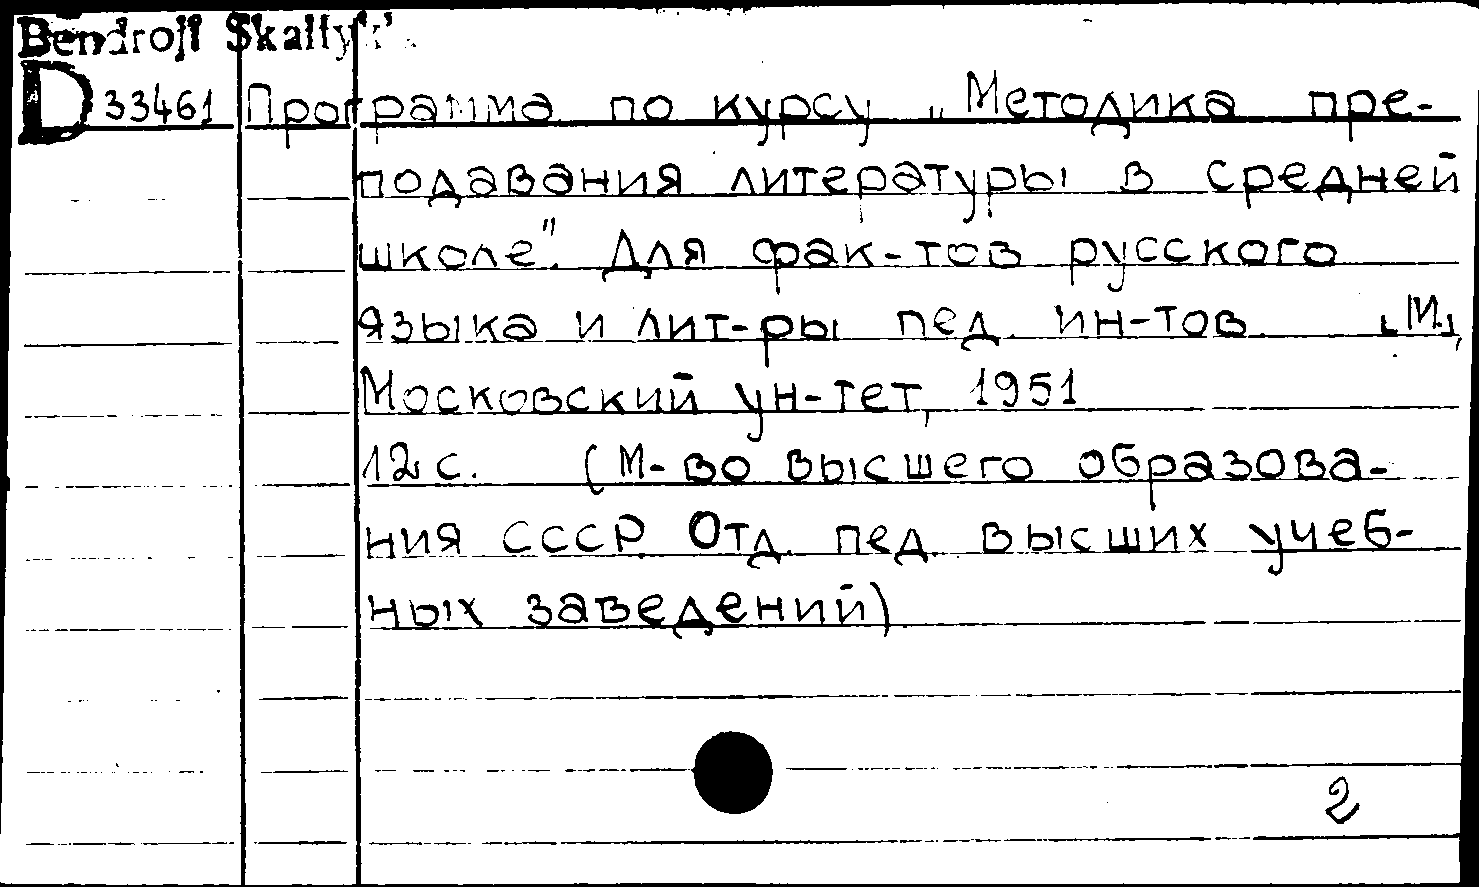 Bendroji Skaityk
D 33461 Программа по курсу „Методика пре-
подавания литературы в средней
школе". Для фак-тов русского
языка и лит-ры пед. ин-тов. [М.],
Московский ун-тет, 1951
12 с. (М-во высшего образова-
ния СССР. Отд. пед. высших учеб-
ных заведений)
2